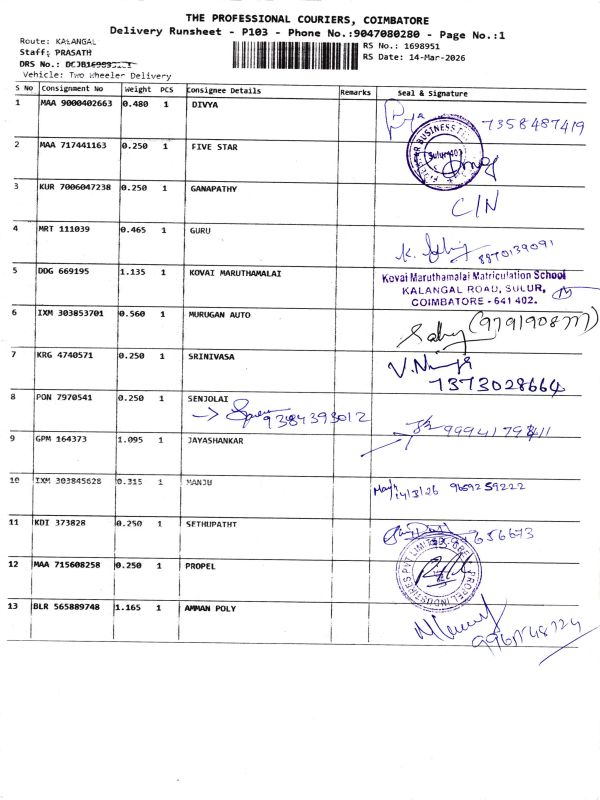 THE PROFESSIONAL COURIERS, COIMBATORE
Delivery Runsheet - P103 - Phone No.:9047080280 - Page No.:1
Route: KALANGAL
Staff: PRASATH
DRS No.:
Vehicle: Two Wheeler Delivery
RS No.: 1698951
RS Date: 14-Mar-2026
S No Consignment No Weight PCS Consignee Details Remarks Seal & Signature
1 MAA 9000402663 0.480 1 DIVYA 7358487419
2 MAA 717441163 0.250 1 FIVE STAR
3 KUR 7006047238 0.250 1 GANAPATHY C/N
4 MRT 111039 0.465 1 GURU 8870139091
5 DDG 669195 1.135 1 KOVAI MARUTHAMALAI
Kovai Maruthamalai Matriculation School
KALANGAL ROAD, SULUR,
COIMBATORE - 641 402.
6 IXM 303853701 0.560 1 MURUGAN AUTO
7 KRG 4740571 0.250 1 SRINIVASA
7373028664
8 PON 7970541 0.250 1 SENJOLAI
9384393012
9 GPM 164373 1.095 1 JAYASHANKAR
10 IXM 303845628 0.315 1 MANJU 14/3/26 9659259222
11 KDI 373828 0.250 1 SETHUPATHT 656673
12 MAA 715608258 0.250 1 PROPEL
PROPEL INDUSTRIES PVT LIMITED
13 BLR 565889748 1.165 1 AMMAN POLY